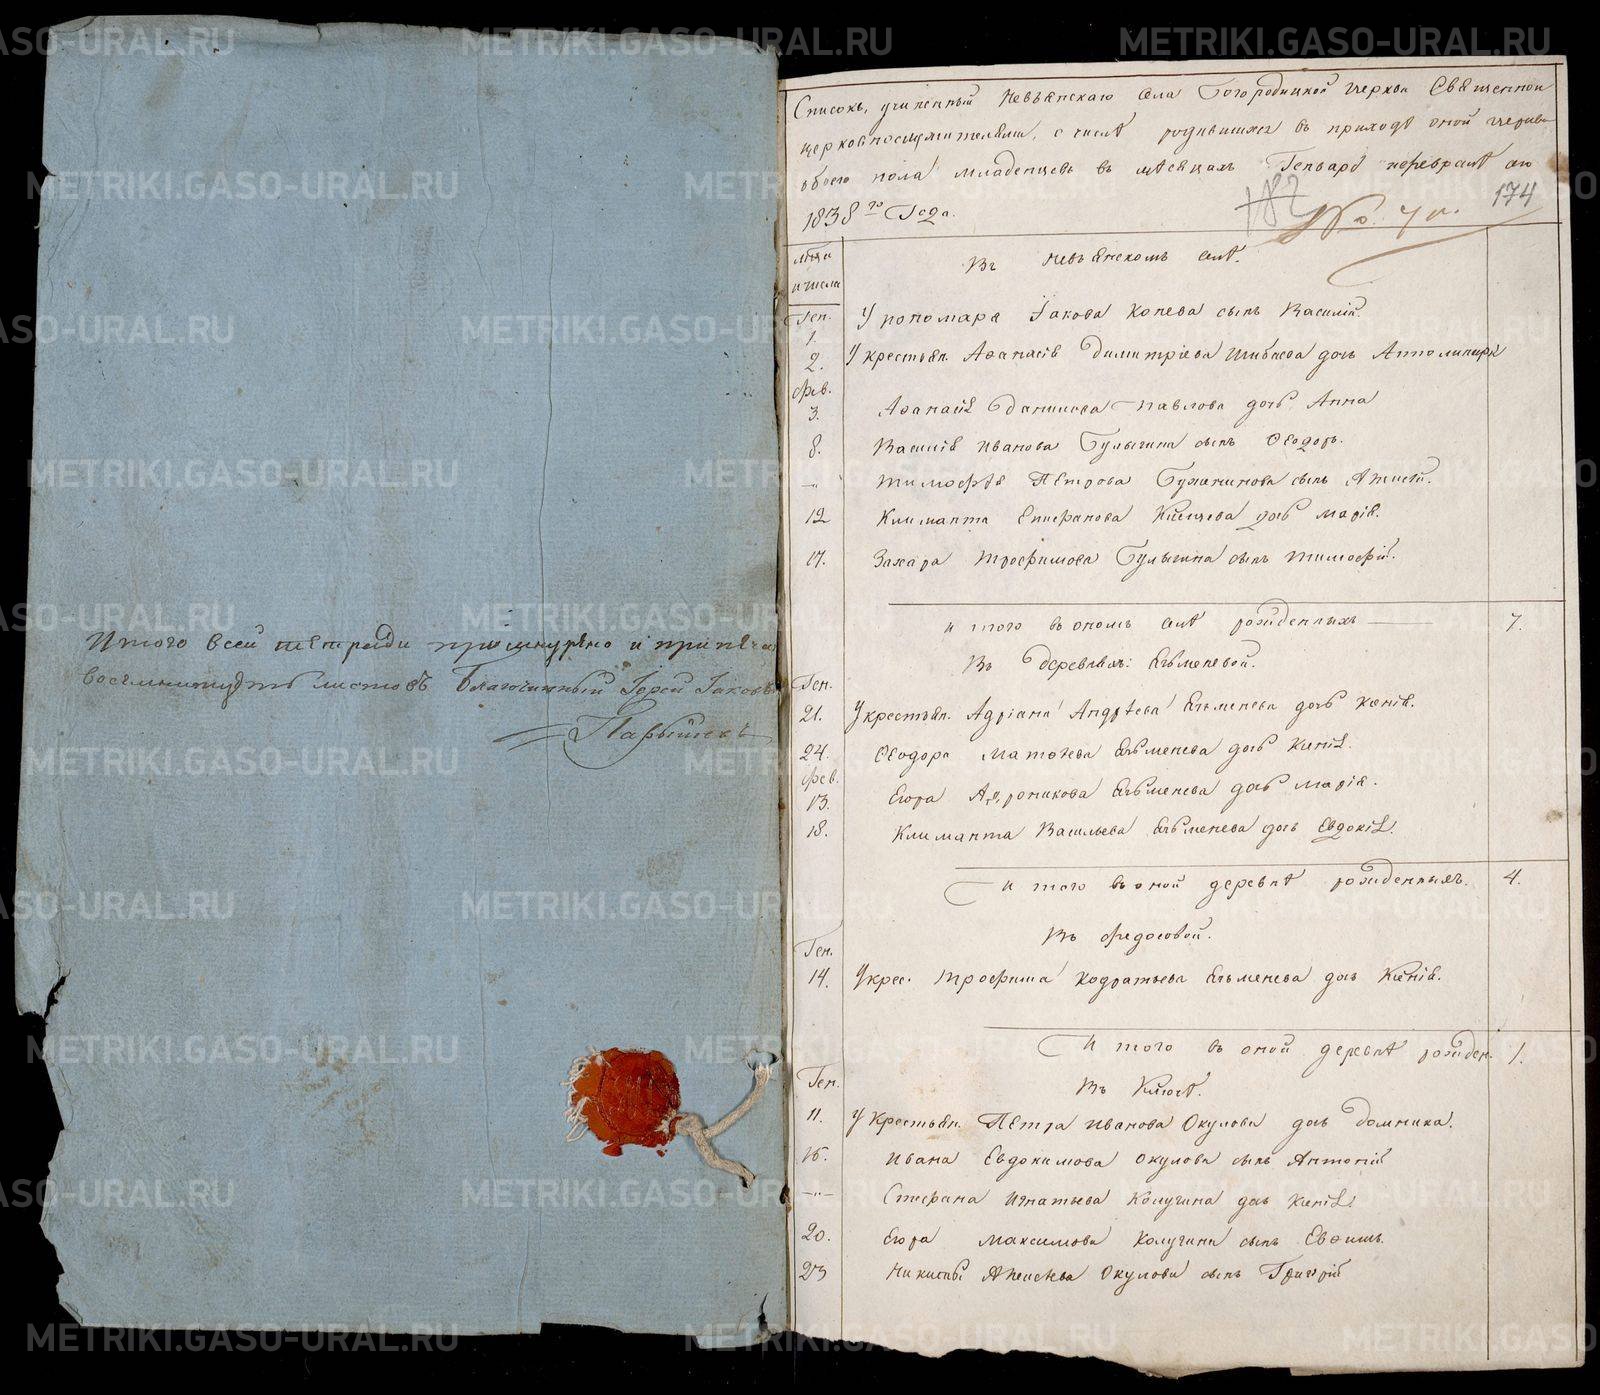 Итого всей тетради прошнурено и припеча
восемнидцать листовъ Благочинный Іерей Іаковъ
Парышевъ
Списокъ, учиненный Невьянскаго села Богородицкой церкви Священно
церковнослужителями, о числѣ родившихся въ приходѣ оной церкви
обоего пола младенцевъ въ мѣсяцахъ Генварѣ и февралѣ сего
1838го Года.
182 174
мѣсяца и числа
Въ Невьянскомъ селѣ.
Ген.
1. У пономаря Іакова Копева сынъ Василій.
2. У крестьян. Аѳанасія Димитріева дочь Апполинарія
Фев.
3. Аѳанасія Данилова Павлова дочь Анна
8. Василія Иванова Булыгина сынъ Ѳеодоръ.
—„ Тимофѣя Петрова сынъ Алексѣй.
12 Климанта Епифанова дочь Марія.
17. Захара Трофимова Булыгина сынъ Тимофій.
и того въ ономъ селѣ рожденныхъ — 7.
Въ деревняхъ: Ельменевой.
Ген.
21. У крестьян. Адріана Андрѣева Ельменева дочь Ксенія.
24. Ѳеодора Матѳеева Ельменева дочь Ксенія.
Фев.
13. Егора Андроникова Ельменева дочь Марія.
18. Климанта Васильева Ельменева дочь Евдокія.
И того въ оной деревнѣ рожденныхъ. 4.
Въ Федосовой.
Ген.
14. У крес. Трофима Кодратьева Ельменева дочь Ксенія.
И того въ оной деревнѣ рожден. 1.
Въ Ключѣ.
Ген.
11. У Крестьян. Петра Иванова Окулова дочь Домника.
16. Ивана Евдокимова Окулова сынъ Антоній
—„— Стефана Игнатьева Колугина дочь Ксенія
20. Егора Максимова Колугина сынъ Евфимъ.
23 Никиты Алексѣева Окулова сынъ Григорій